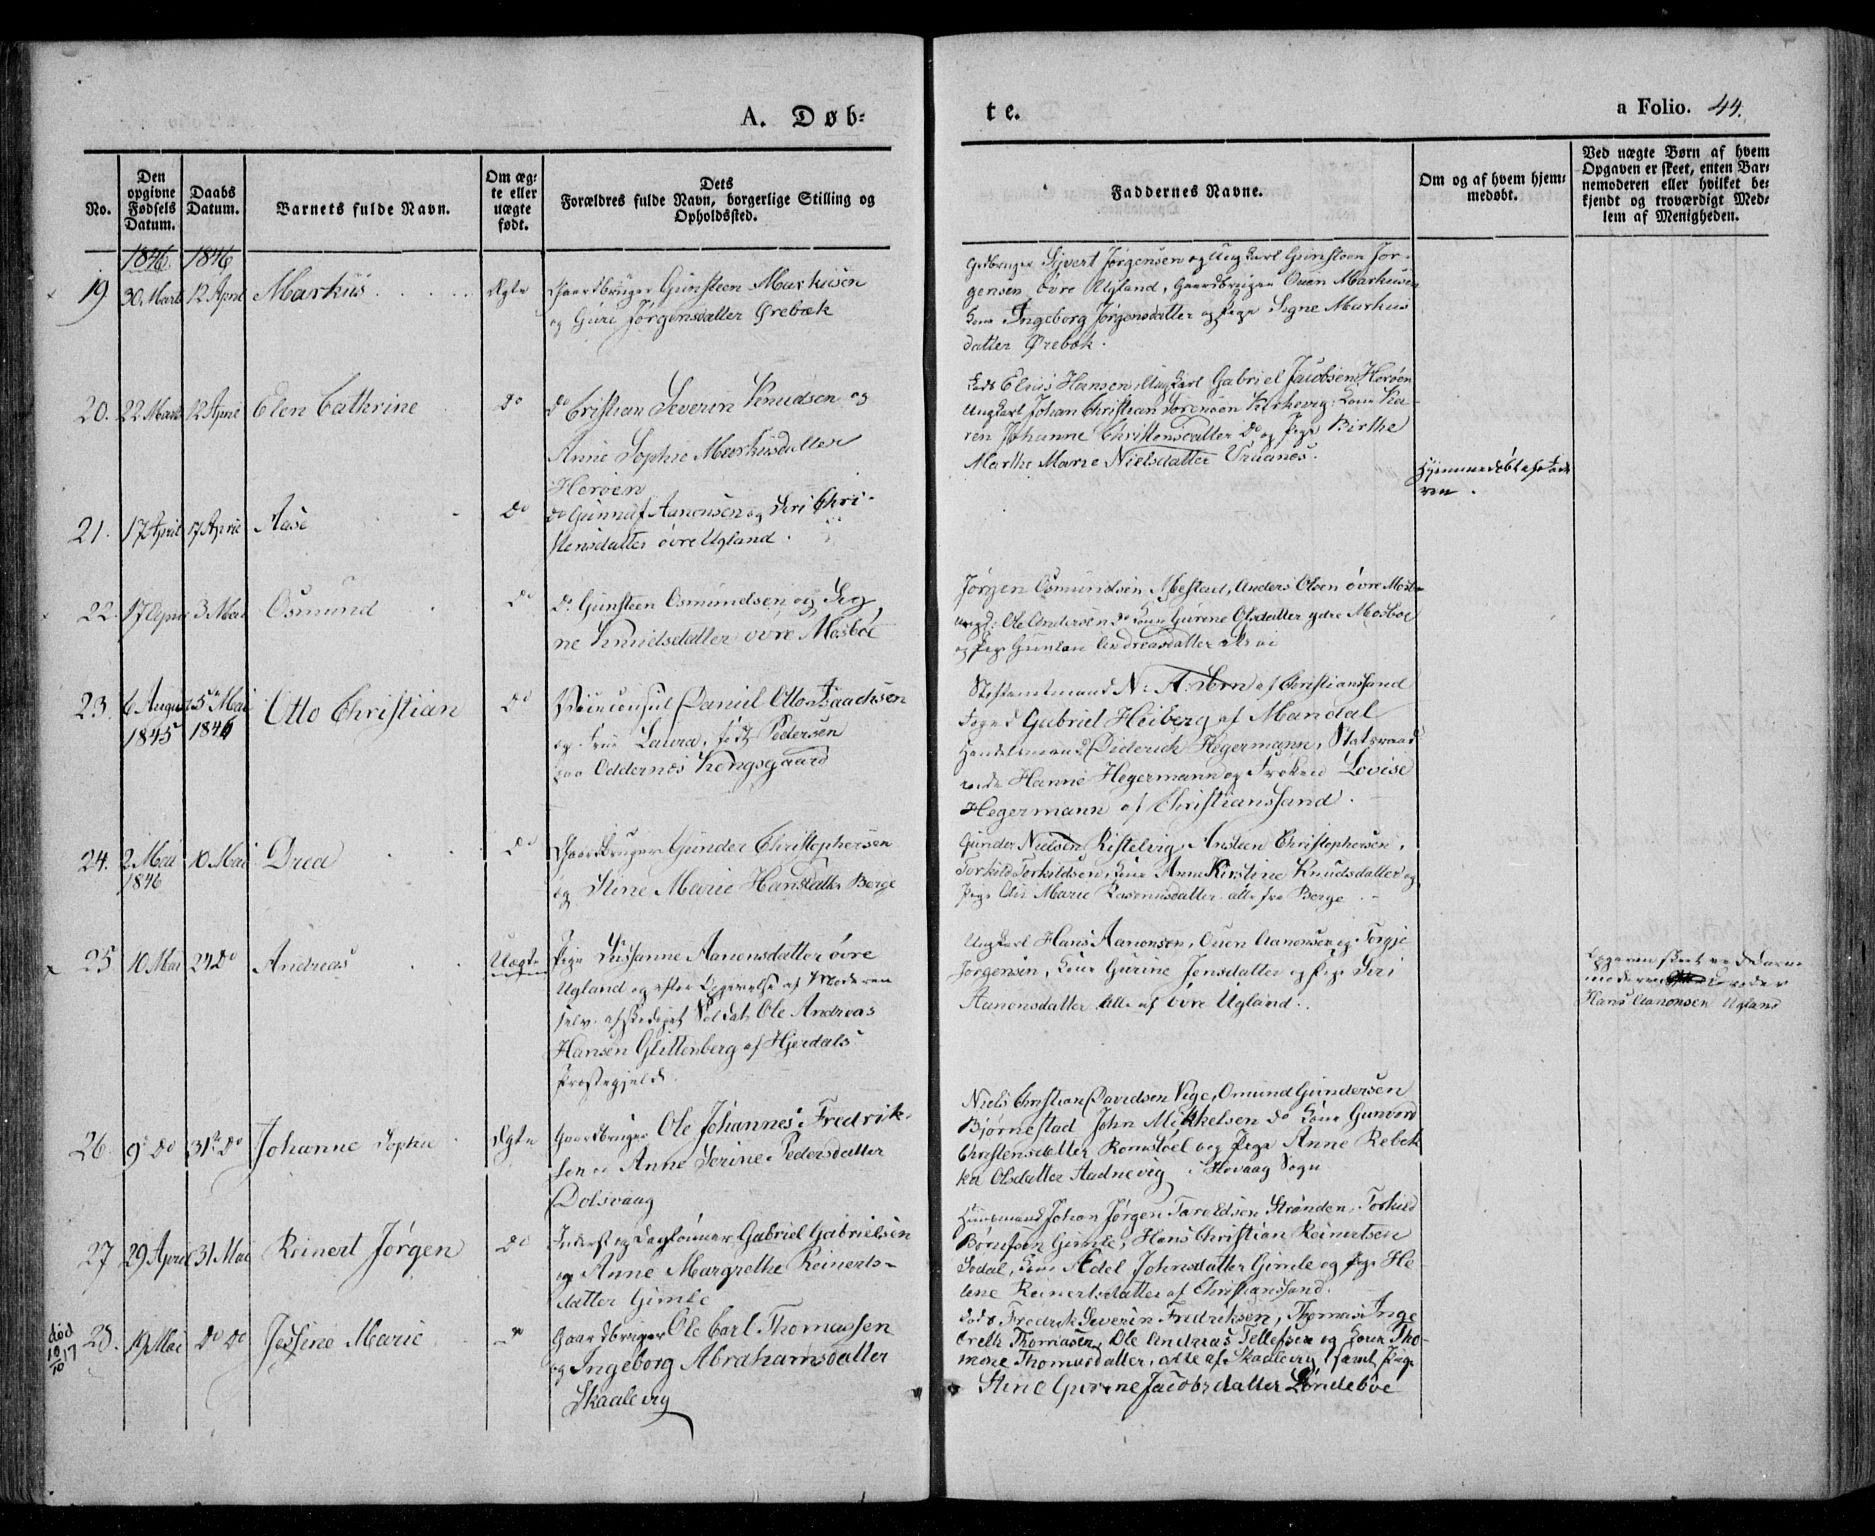 A. Døb-
te.
a Folio. 44.
No.
Den opgivne Fødsels Datum.
Daabs Datum.
Barnets fulde Navn.
Om ægte eller uægte født.
Dets
Forældres fulde Navn, borgerlige Stilling og Opholdssted.
Faddernes Navne.
Om og af hvem hjemmedøbt.
Ved uægte Børn af hvem Opgaven er skeet, enten Barnemoderen eller hvilket bekjendt og troværdigt Medlem af Menigheden.
1846 1846
19 30. Marts 12 April Markus Ægte
Gaardbruger Gunsteen Markusen
og Guri Jørgensdatter Ørebæk
Gdbruger Sjvert Jørgensen og Ungkarl Gunsteen Jør-
gensen øvre Ugland, Gaardbruger Ouen Markusen
Kone Ingeborg Jørgensdatter og Pige Signe Markus
datter Ørebæk.
20. 22 Marts 12 April Elen Cathrine Do
Do Cristian Severin Knudsen og
Anne Sophie Markusdatter
Herøen
Elius Hansen, Ungkarl Gabriel Jacobsen Herøen
Ungkarl Johan Christian Sørensen Kirkevig: Kone Ka-
ren Johanne Christensdatter Do og Pige Birthe
Marthe Marie Nielsdatter
21. 17 April 17 April Aase Do
Do Gunnuf Aanonsen og Siri Chri-
stensdatter øvre Ugland.
Hjemmedøbt af Fade
ren.
22. 17 April 3 Mai Osmund Do
Do Gunsteen Osmundsen og Sig
ne Knudsdatter øvre Mosbøe
Jørgen Osmundsen Abestad, Anders Olsen øvre Mosb.
Ungd: Ole Andersen Do Kone Gurine Olsdatter ydre Mosboe
og Pige Gunlou Andreasdatter
23. 6 August 5te Mai Otto Christian Do
1845 1846
Viceconsul Daniel Otto Isaachsen
og Frue Laura, født Pedersen
paa Oddernæs Kongsgaard
Stiftamtmand N: A: af Christiansand
Foged Gabriel Heiberg af Mandal
Handelsmand Diderich Hegermann, Statsraad
inde Hanne Hegermann og Frøken Lovise
Hegermann af Christianssand.
24. 2 Mai 10 Mai Drea Do
1846
Gaardbruger Gunder Christophersen
og Stine Marie Hansdatter Berge
Gunder Nielsen Kistelvig, Ansteen Christophersen,
Torkild Torkildsen, Kone Anne Kirstine Knudsdatter og
Pige Marie Rasmusdatter alle fra Berge
25. 10 Mai 24 Do Andreas Uægte
Pige Susanne Aanonsdatter øvre
Ugland og efter Opgivelse af Moderen
selv. afskediget Soldat Ole Andreas
Hansen Glittenberg af Hjerdals
Præstegjeld.
Ungkarl Hans Aanonsen, Ouen Aanonsen og Torgje
Jørgensen, Kone Gurine Jensdatter og Pige Siri
Aanonsdatter Alle af øvre Ugland.
Opgaven skeet ved Barne
moderens Broder
Hans Aanonsen Ugland
26. 9de Do 31te Do Johanne Sophie Ægte
Gaardbruger Ole Johannes Fredrik-
sen og Anne Serine Pedersdatter
Dolsvaag
Niels Christian Davidsen Vige, Omund Gundersen
Bjørnestad John Mikkelsen Do Kone Gunvord
Christensdatter Romstøel og Pige Anne Rebek
ka Olsdatter Aadnevig i Høvaag Sogn
27 29 April 31 Mai Reinert Jørgen Do
Inderst og Dagløner Gabriel Gabrielsen
og Anne Margrethe Reinerts-
datter Gimle
Huusmand Johan Jørgen Taraldsen Stranden, Torkild
Børufsen Gimle, Hans Christian Reinertsen
Sødal, Kone Ædel Johnsdatter Gimle og Pige He
lene Reinertsdatter af Christianssand.
død 10/10 17
28. 19 Mai Do Do Jessine Marie
Gaardbruger Ole Carl Thomassen
og Ingeborg Abrahamsdatter
Skaalevig
Fredrik Severin Fredriksen, Thomas Inge
breth Thomasen, Ole Andreas Tellefsen og Kone Tho-
mine Thomasdatter, alle af Skaalevig, samt Pige
Stine Gurine Jacobsdatter Løndebøe